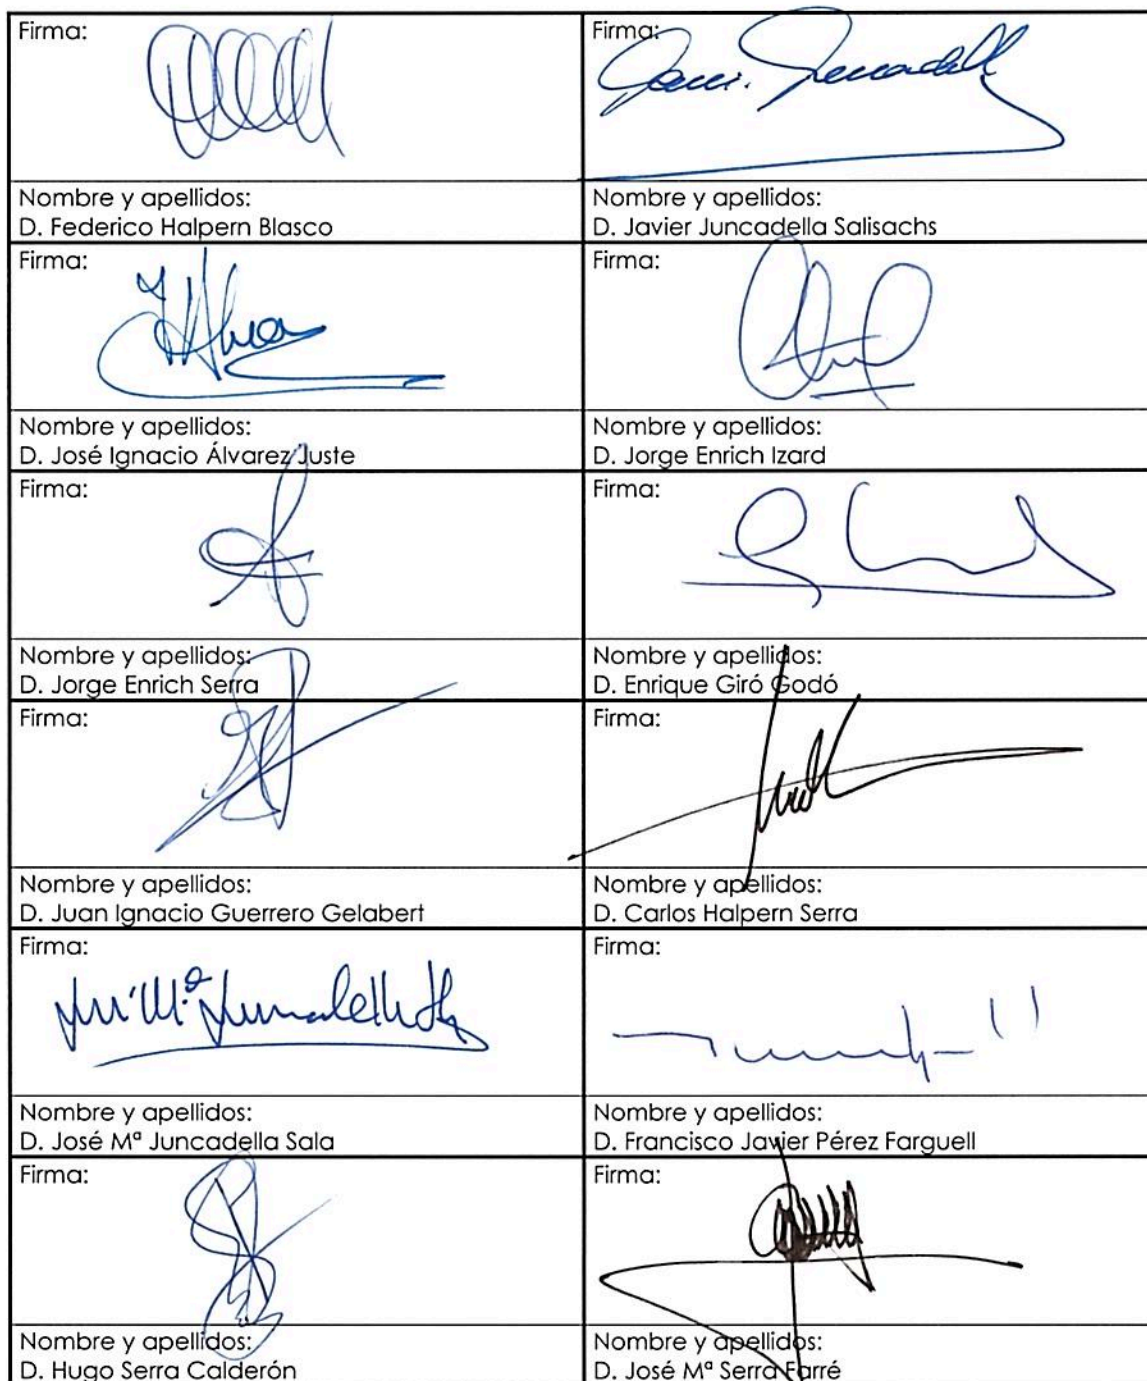 Firma:
Firma:
Nombre y apellidos:
D. Federico Halpern Blasco
Nombre y apellidos:
D. Javier Juncadella Salisachs
Firma:
Firma:
Nombre y apellidos:
D. José Ignacio Álvarez Juste
Nombre y apellidos:
D. Jorge Enrich Izard
Firma:
Firma:
Nombre y apellidos:
D. Jorge Enrich Serra
Nombre y apellidos:
D. Enrique Giró Godó
Firma:
Firma:
Nombre y apellidos:
D. Juan Ignacio Guerrero Gelabert
Nombre y apellidos:
D. Carlos Halpern Serra
Firma:
Firma:
Nombre y apellidos:
D. José Mª Juncadella Sala
Nombre y apellidos:
D. Francisco Javier Pérez Farguell
Firma:
Firma:
Nombre y apellidos:
D. Hugo Serra Calderón
Nombre y apellidos:
D. José Mª Serra Farré